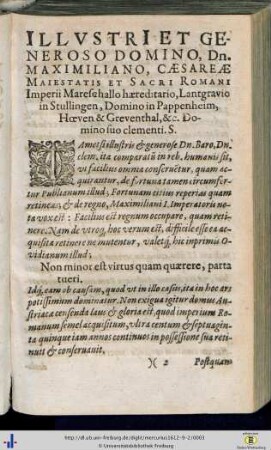 ILLVSTRI ET GE-
NEROSO DOMINO, Dn.
MAXIMILIANO, CÆSAREÆ
MAIESTATIS ET SACRI ROMANI
Imperii Maresehallo hæreditario, Lantgravio
in Stullingen, Domino in Pappenheim,
Hœven & Greventhal, &c. Do-
mino suo clementi. S.
TAmetsi illustris & generose Dn. Baro, Dn.
clem, ita comparatũ in reb. humanis sit,
vt facilius omnia conserventur, quam ac-
quirantur, de fortuna tamen circumfer-
tur Publianum illud; Fortunam citius reperias quam
retineas; & de regno, Maximiliani I. Imperatoris no-
ta vox est: Facilius est regnum occupare, quam reti-
nere. Nam de vtroq, hoc verum est, difficile esse ea ac-
quisita retinere ne mutentur, valetq, hic inprimis O-
vidianum illud;
Non minor est virtus quam quærere, parta
tueri.
Idq, eam ob causam, quod vt in illo casus, ita in hoc ars
potissimum dominatur. Non exigua igitur domus Au-
striacæ censenda laus & gloria est, quod imperium Ro-
manum semel acquisitum, vltra centum & septuagin-
ta quinque iam annos continuos in possessione sua reti-
nuit & conservavit.
)( 2 Postquam
http://dl.ub.uni-freiburg.de/diglit/mercurius1612-9-2/0001
© Universitätsbibliothek Freiburg